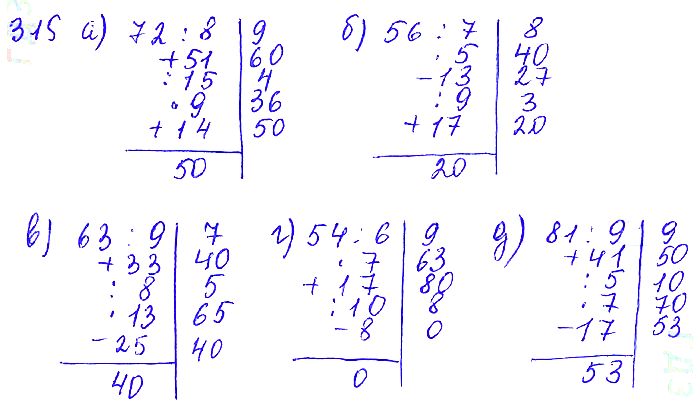 315 а) 72 : 8 | 9
+51 | 60
:15 | 4
·9 | 36
+14 | 50
50
б) 56 : 7 | 8
·5 | 40
-13 | 27
:9 | 3
+17 | 20
20
в) 63 : 9 | 7
+33 | 40
:8 | 5
·13 | 65
-25 | 40
40
г) 54 : 6 | 9
·7 | 63
+17 | 80
:10 | 8
-8 | 0
0
д) 81 : 9 | 9
+41 | 50
:5 | 10
·7 | 70
-17 | 53
53